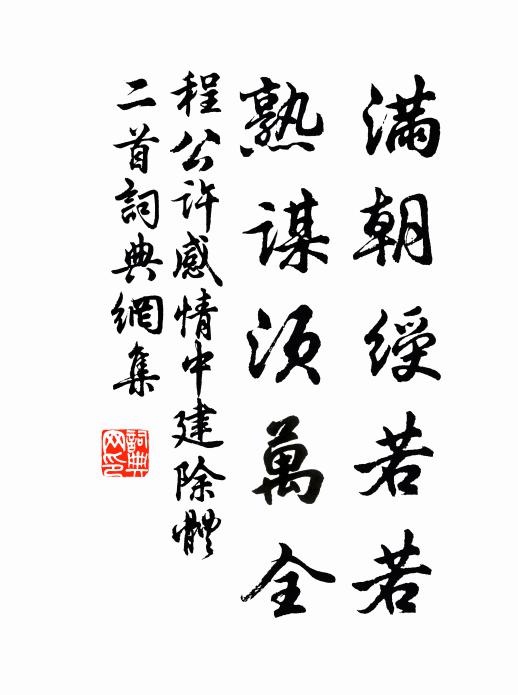 滿朝綬若若
熟謀須萬全
程公許感情中建除體
二首詞典網集
詞典
网印